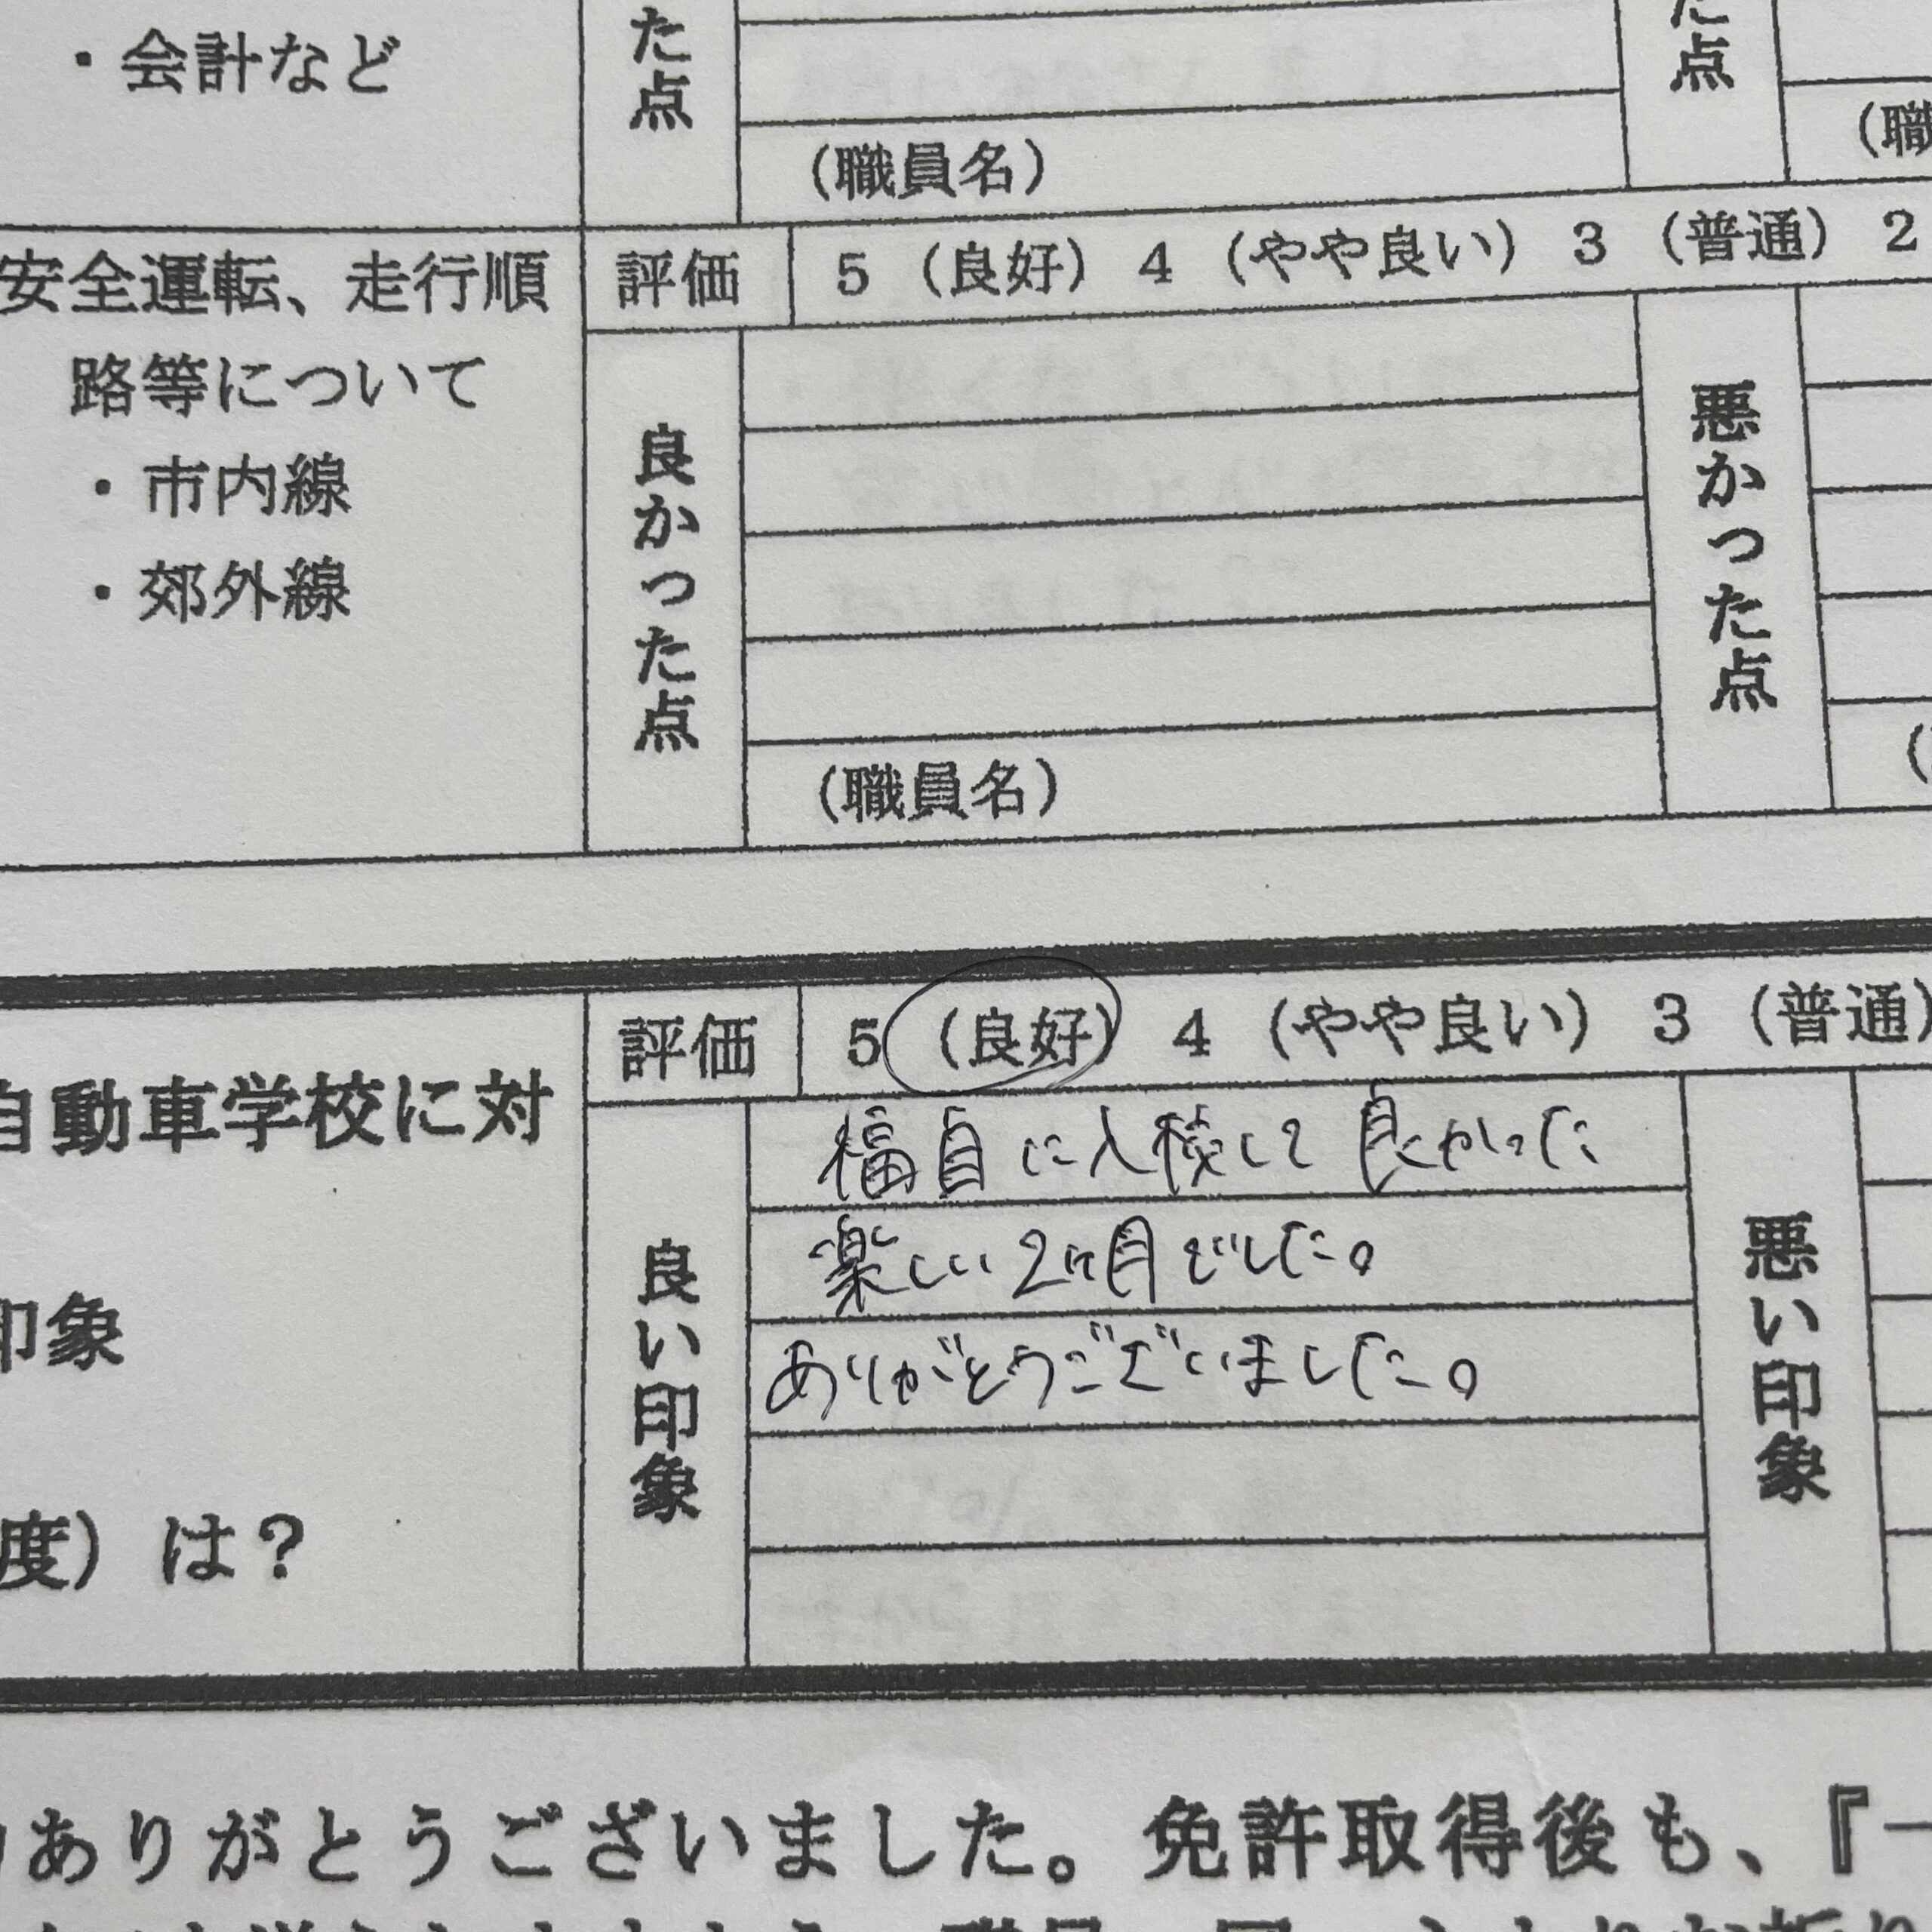 ・会計など
た点
た点
(職員名)
(職
安全運転、走行順
路等について
・市内線
・郊外線
評価
5 (良好) 4 (やや良い) 3 (普通) 2
良かった点
悪かった点
(職員名)
自動車学校に対
印象
度) は?
評価
5 (良好) 4 (やや良い) 3 (普通)
良い印象
福自に入校して良かった
楽しい2ヶ月でした。
ありがとうございました。
悪い印象
ありがとうございました。免許取得後も、『一